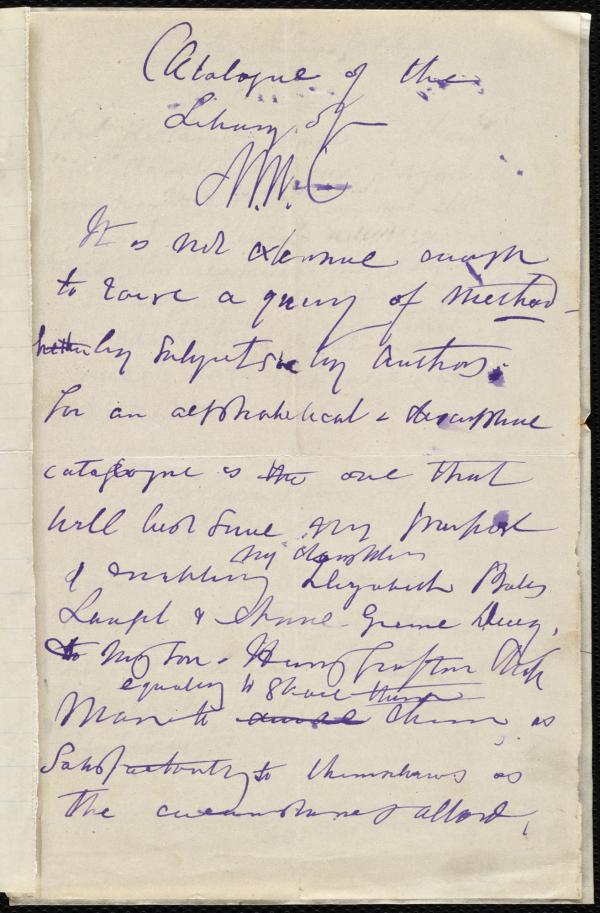 Catalogue of the
Library of
M.W.C
It is not extensive enough
to raise a query of method -
whether by subjects or by authors:
for an alphabetical & descriptive
catalogue is the one that
will best serve my purpose
my daughters
of enabling Elizabeth Bates
Laugel & Anne Greene Dicey,
& my son - Henry Grafton Chap
equally to share
man to them as
satisfactorily to themselves as
the circumstances afford,